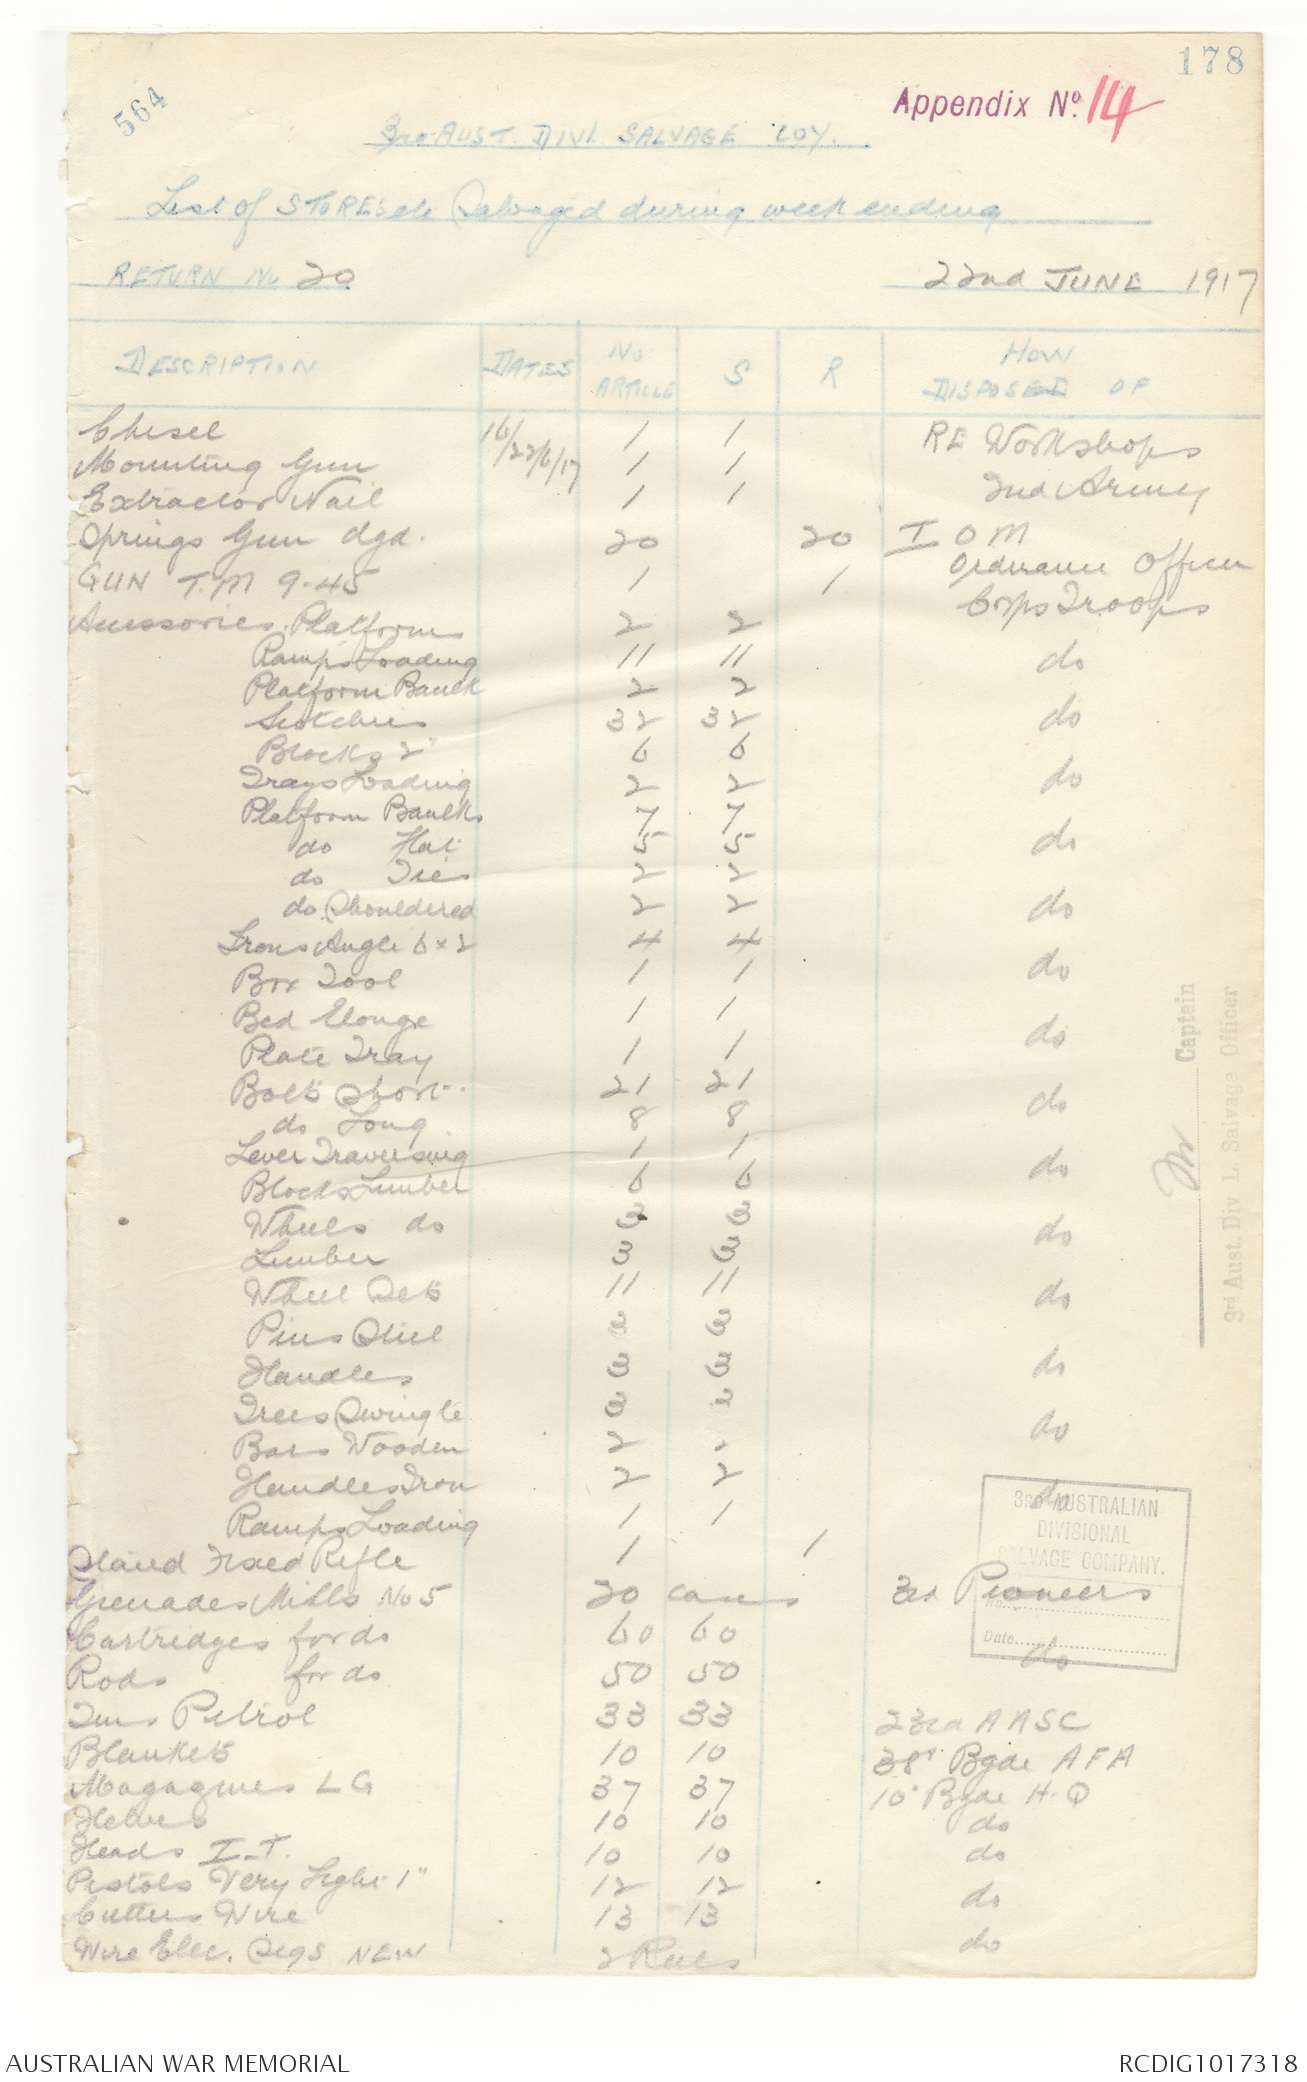 178
564
Appendix No. 14
3RD AUST. DIVL SALVAGE COY.
List of STORES etc Salvaged during week ending
RETURN No 20 22nd JUNE 1917
DESCRIPTION DATES No ARTICLE S R HOW DISPOSED OF
Chisel 16/22/6/17 1 1 RE Workshops
Mounting Gun 1 1
Extractor Nail 1 1 2nd Army
Springs Gun dgd. 20 20 I O M
GUN T.M 9.45 1 1 Ordnance Officer
Accessories. Platforms 2 2 Corps Troops
Ramps Loading 11 11 do
Platform Baulk 2 2
Scotches 32 32 do
Blocks 2" 6 6
Trays Loading 2 2 do
Platform Baulks 7 7
do Flat 5 5 do
do Ties 2 2
do Shouldered 2 2 do
Irons Angle 6 x 2 4 4
Box Tool 1 1 do
Bed 1 1
Plate Tray 1 1 do
Bolts Short 21 21
do Long 8 8 do
Lever Traversing 1 1
Blocks Limber 6 6 do
Wheels do 3 3 do
Limber 3 3
Wheel Sets 11 11 do
Pins Steel 3 3
Handles 3 3 do
Trees Swingle 3 3
Bars Wooden 2 do
Handles Iron 2 2
Ramps Loading 1 1 do
Stand Fixed Rifle 1 1
Grenades Mills No 5 20 cases 3rd Pioneers
Cartridges for do 60 60
Rods for do 50 50 do
Tins Petrol 33 33 23rd AASC
Blankets 10 10 38th Bgde AFA
Magazines LG 37 37 10th Bgde H.Q
Helves 10 10 do
Heads I.T. 10 10 do
Pistols Very Light 1" 12 12 do
Cutters Wire 13 13
Wire Elec. Sigs NEW 2 Reels do
Captain
3rd Aust. Div L. Salvage Officer
3RD AUSTRALIAN
DIVISIONAL
SALVAGE COMPANY.
No.
Date
AUSTRALIAN WAR MEMORIAL RCDIG1017318